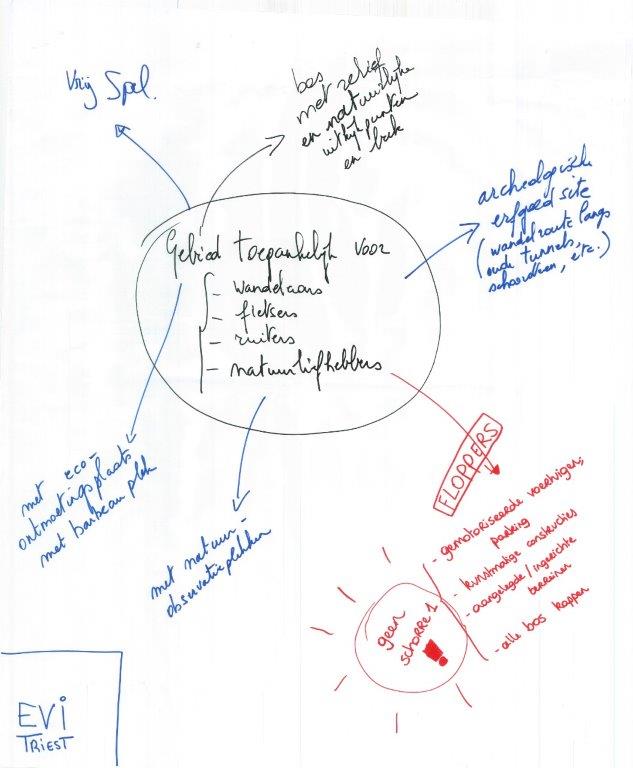 Vrij Spel.
bos
met reliëf
en natuurlijke
uitkijkpunten
en beek
archeologische
erfgoed site
(wandelroute langs
oude tunnels,
schoorsteen, etc.)
Gebied toegankelijk voor
- wandelaars
- fietsers
- ruiters
- natuurliefhebbers
met eco-
ontmoetingsplaats
met barbecue plek
met natuur-
observatieplekken
FLOPPERS
- gemotoriseerde voertuigen;
parking
- kunstmatige constructies
- aangelegde/ingerichte
terreinen
- alle bos kappen
geen
schorre 1
!
EVI
TRIEST